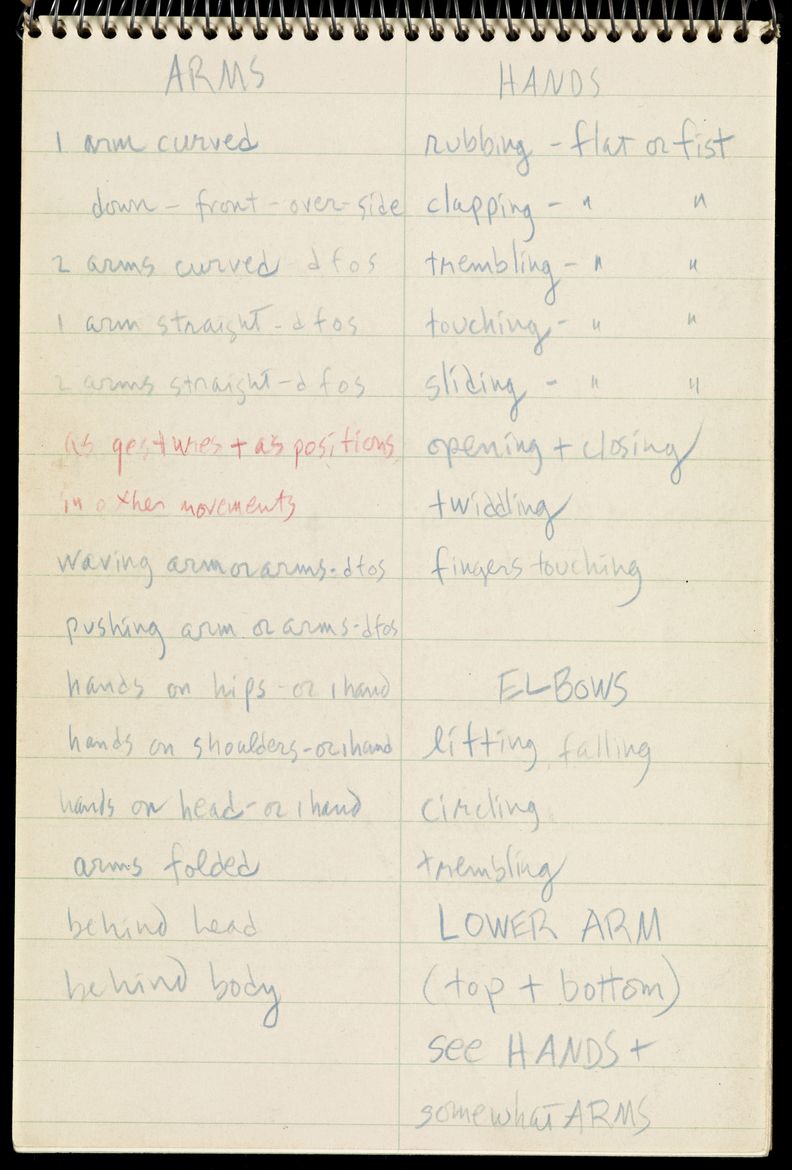 ARMS
1 arm curved
down - front - over - side
2 arms curved - d f o s
1 arm straight - d f o s
2 arms straight - d f o s
as gestures + as positions
in other movements
waving arm or arms - dfos
pushing arm or arms - dfos
hands on hips - or 1 hand
hands on shoulders - or 1 hand
hands on head - or 1 hand
arms folded
behind head
behind body
HANDS
rubbing - flat or fist
clapping - " "
trembling - " "
touching - " "
sliding - " "
opening + closing
twiddling
fingers touching
ELBOWS
lifting falling
circling
trembling
LOWER ARM
(top + bottom)
see HANDS +
somewhat ARMS